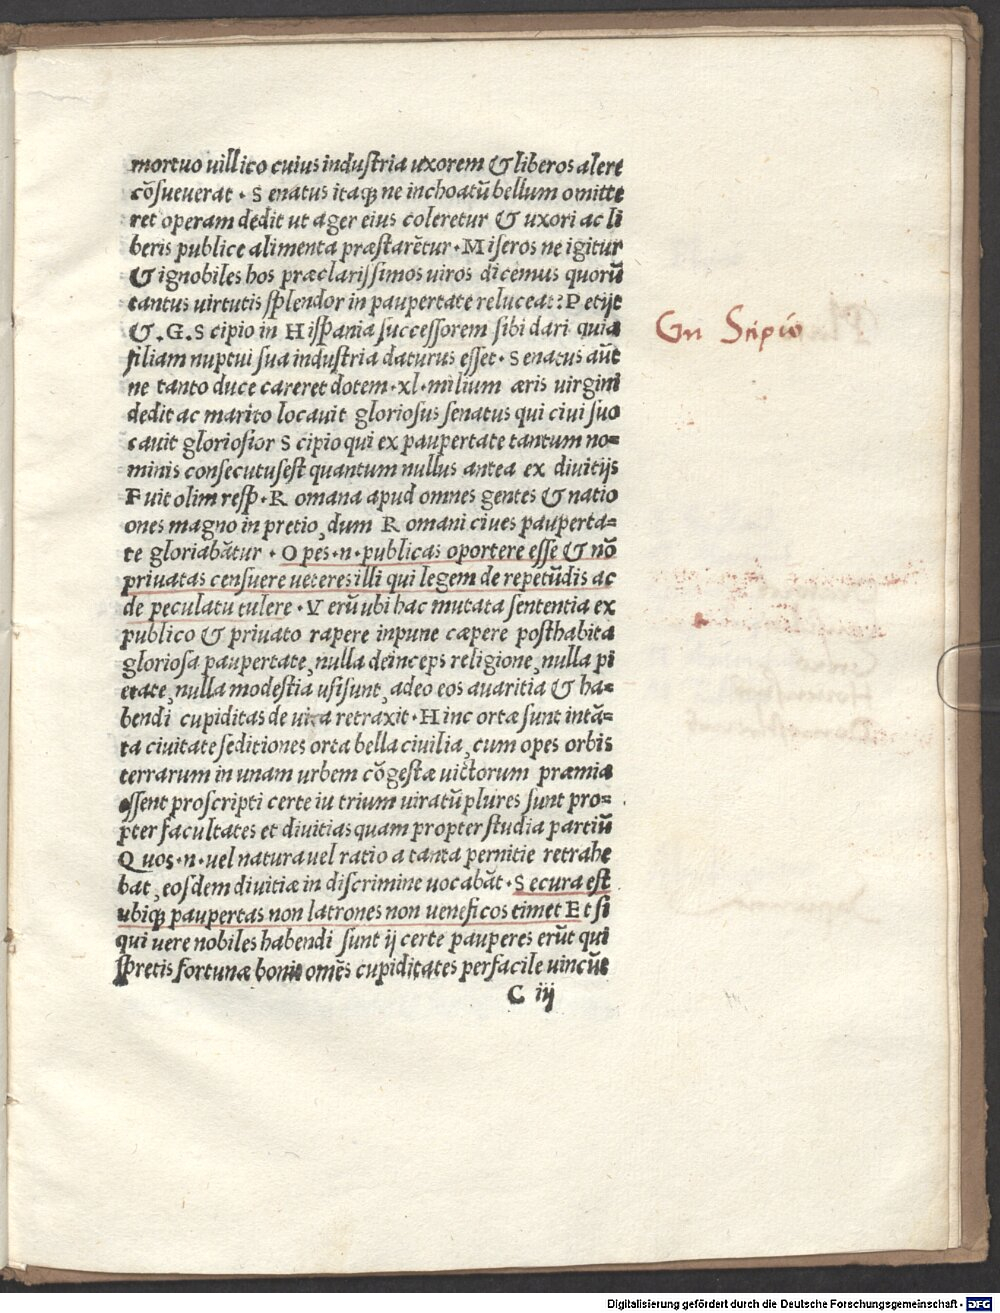 mortuo uillico cuius industria uxorem & liberos alere
cōsueuerat · Senatus itaqꝫ ne inchoatū bellum omitte
ret operam dedit ut ager eius coleretur & uxori ac li
beris publice alimenta præstarētur · Miseros ne igitur
& ignobiles hos præclarissimos uiros dicemus quorū
tantus uirtutis splendor in paupertate reluceat? Petijt
& .G. Scipio in Hispania successorem sibi dari quia
Gn Scipio
filiam nuptui sua industria daturus esset · Senatus aūt
ne tanto duce careret dotem · xl · milium æris uirgini
dedit ac marito locauit gloriosus senatus qui ciui suo
cauit gloriosior Scipio qui ex paupertate tantum no=
minis consecutus est quantum nullus antea ex diuitijs
Fuit olim resp · Romana apud omnes gentes & natio
ones magno in pretio, dum Romani ciues pauperta=
te gloriabātur · Opes · n · publicas oportere esse & nō
priuatas censuere ueteres illi qui legem de repetūdis ac
de peculatu tulere · Verū ubi hac mutata sententia ex
publico & priuato rapere inpune cæpere posthabita
gloriosa paupertate, nulla deinceps religione, nulla pi
etate, nulla modestia usi sunt, adeo eos auaritia & ha=
bendi cupiditas de uita retraxit · Hinc ortæ sunt intā=
ta ciuitate seditiones orta bella ciuilia, cum opes orbis
terrarum in unam urbem cōgestæ uictorum præmia
essent proscripti certe iu trium uiratū plures sunt pro=
pter facultates et diuitias quam propter studia partiū
Quos · n · uel natura uel ratio a tanta pernitie retrahe
bat, eosdem diuitiæ in discrimine uocabāt · Secura est
ubiqꝫ paupertas non latrones non ueneficos timet Et si
qui uere nobiles habendi sunt ij certe pauperes erūt qui
spretis fortunæ bonis omēs cupiditates perfacile uincūt
C iij
Digitalisierung gefördert durch die Deutsche Forschungsgemeinschaft - DFG